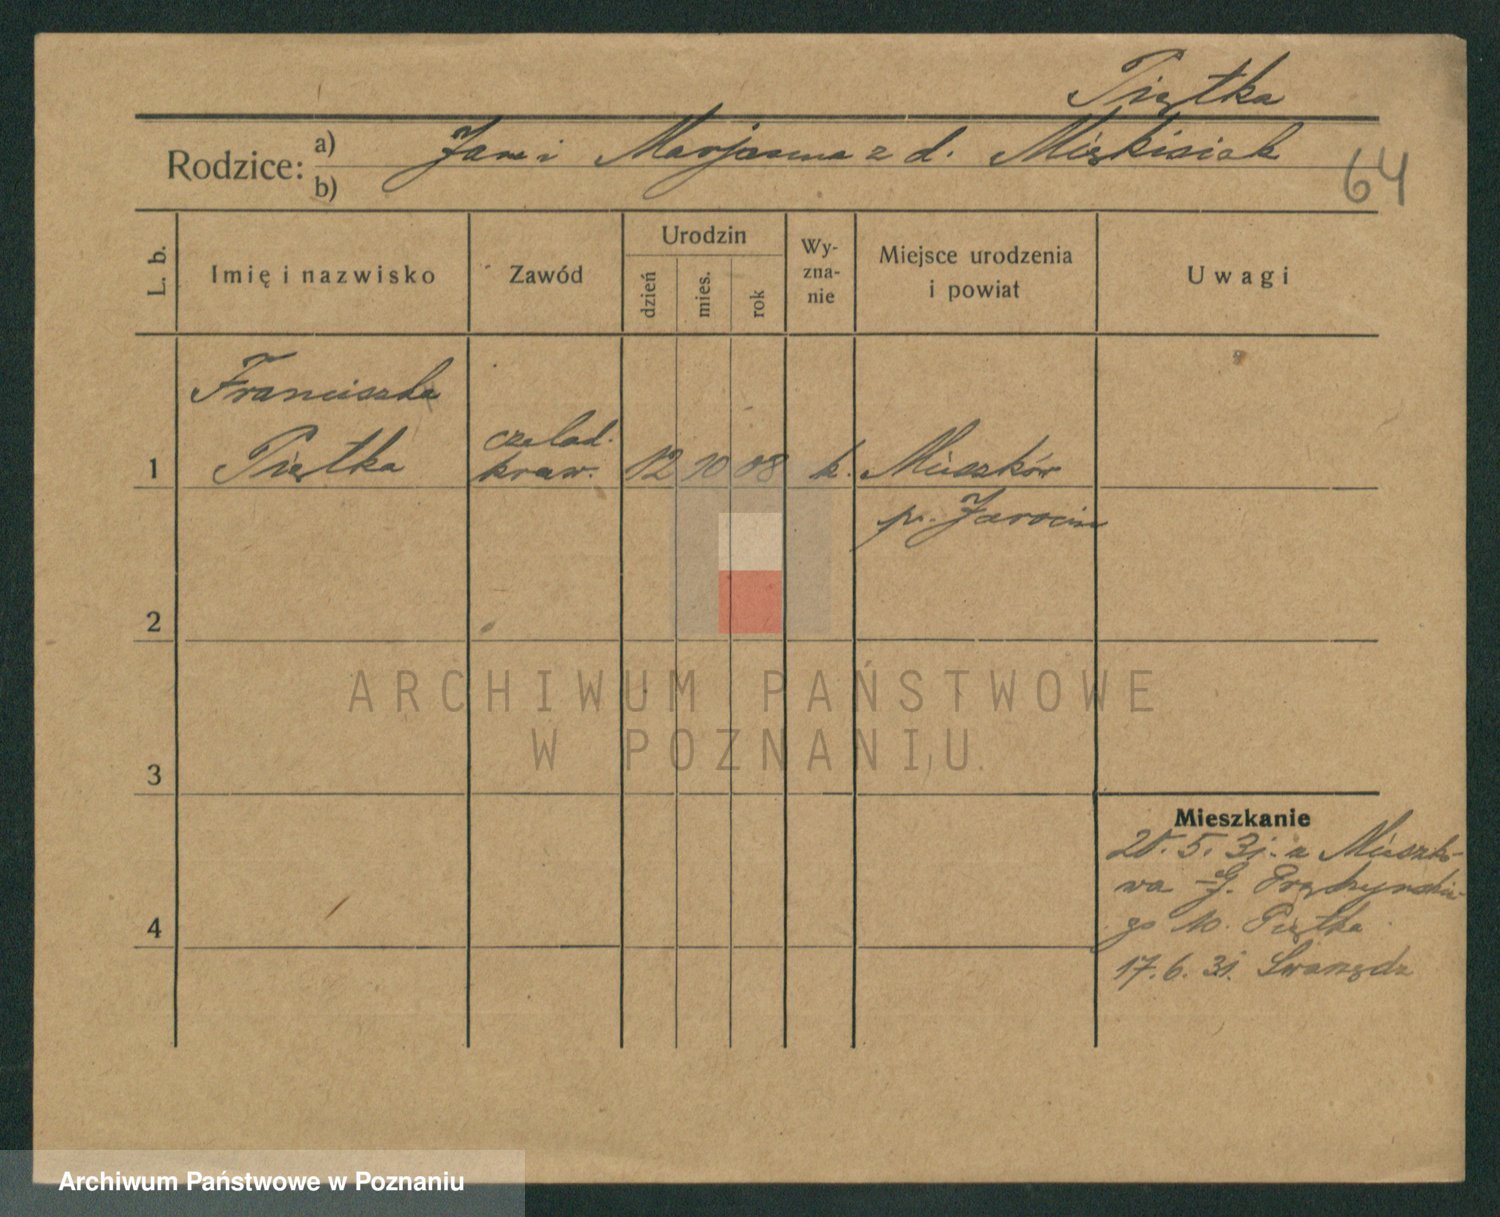 Piętka
Rodzice: a) Jan i Marjanna z d. Miękisiak
b)
64
L. b.
Imię i nazwisko
Zawód
Urodzin
dzień
mies.
rok
Wy-
zna-
nie
Miejsce urodzenia
i powiat
Uwagi
Franciszka
1 Piętka
czelad.
kraw.
12 10 08
k.
Mieszków
p. Jarocin
2
3
4
Mieszkanie
20. 5. 31. z Mieszko-
wa
go 10. Piętka
17. 6. 31. Swarzędz
ARCHIWUM PAŃSTWOWE
W POZNANIU
Archiwum Państwowe w Poznaniu